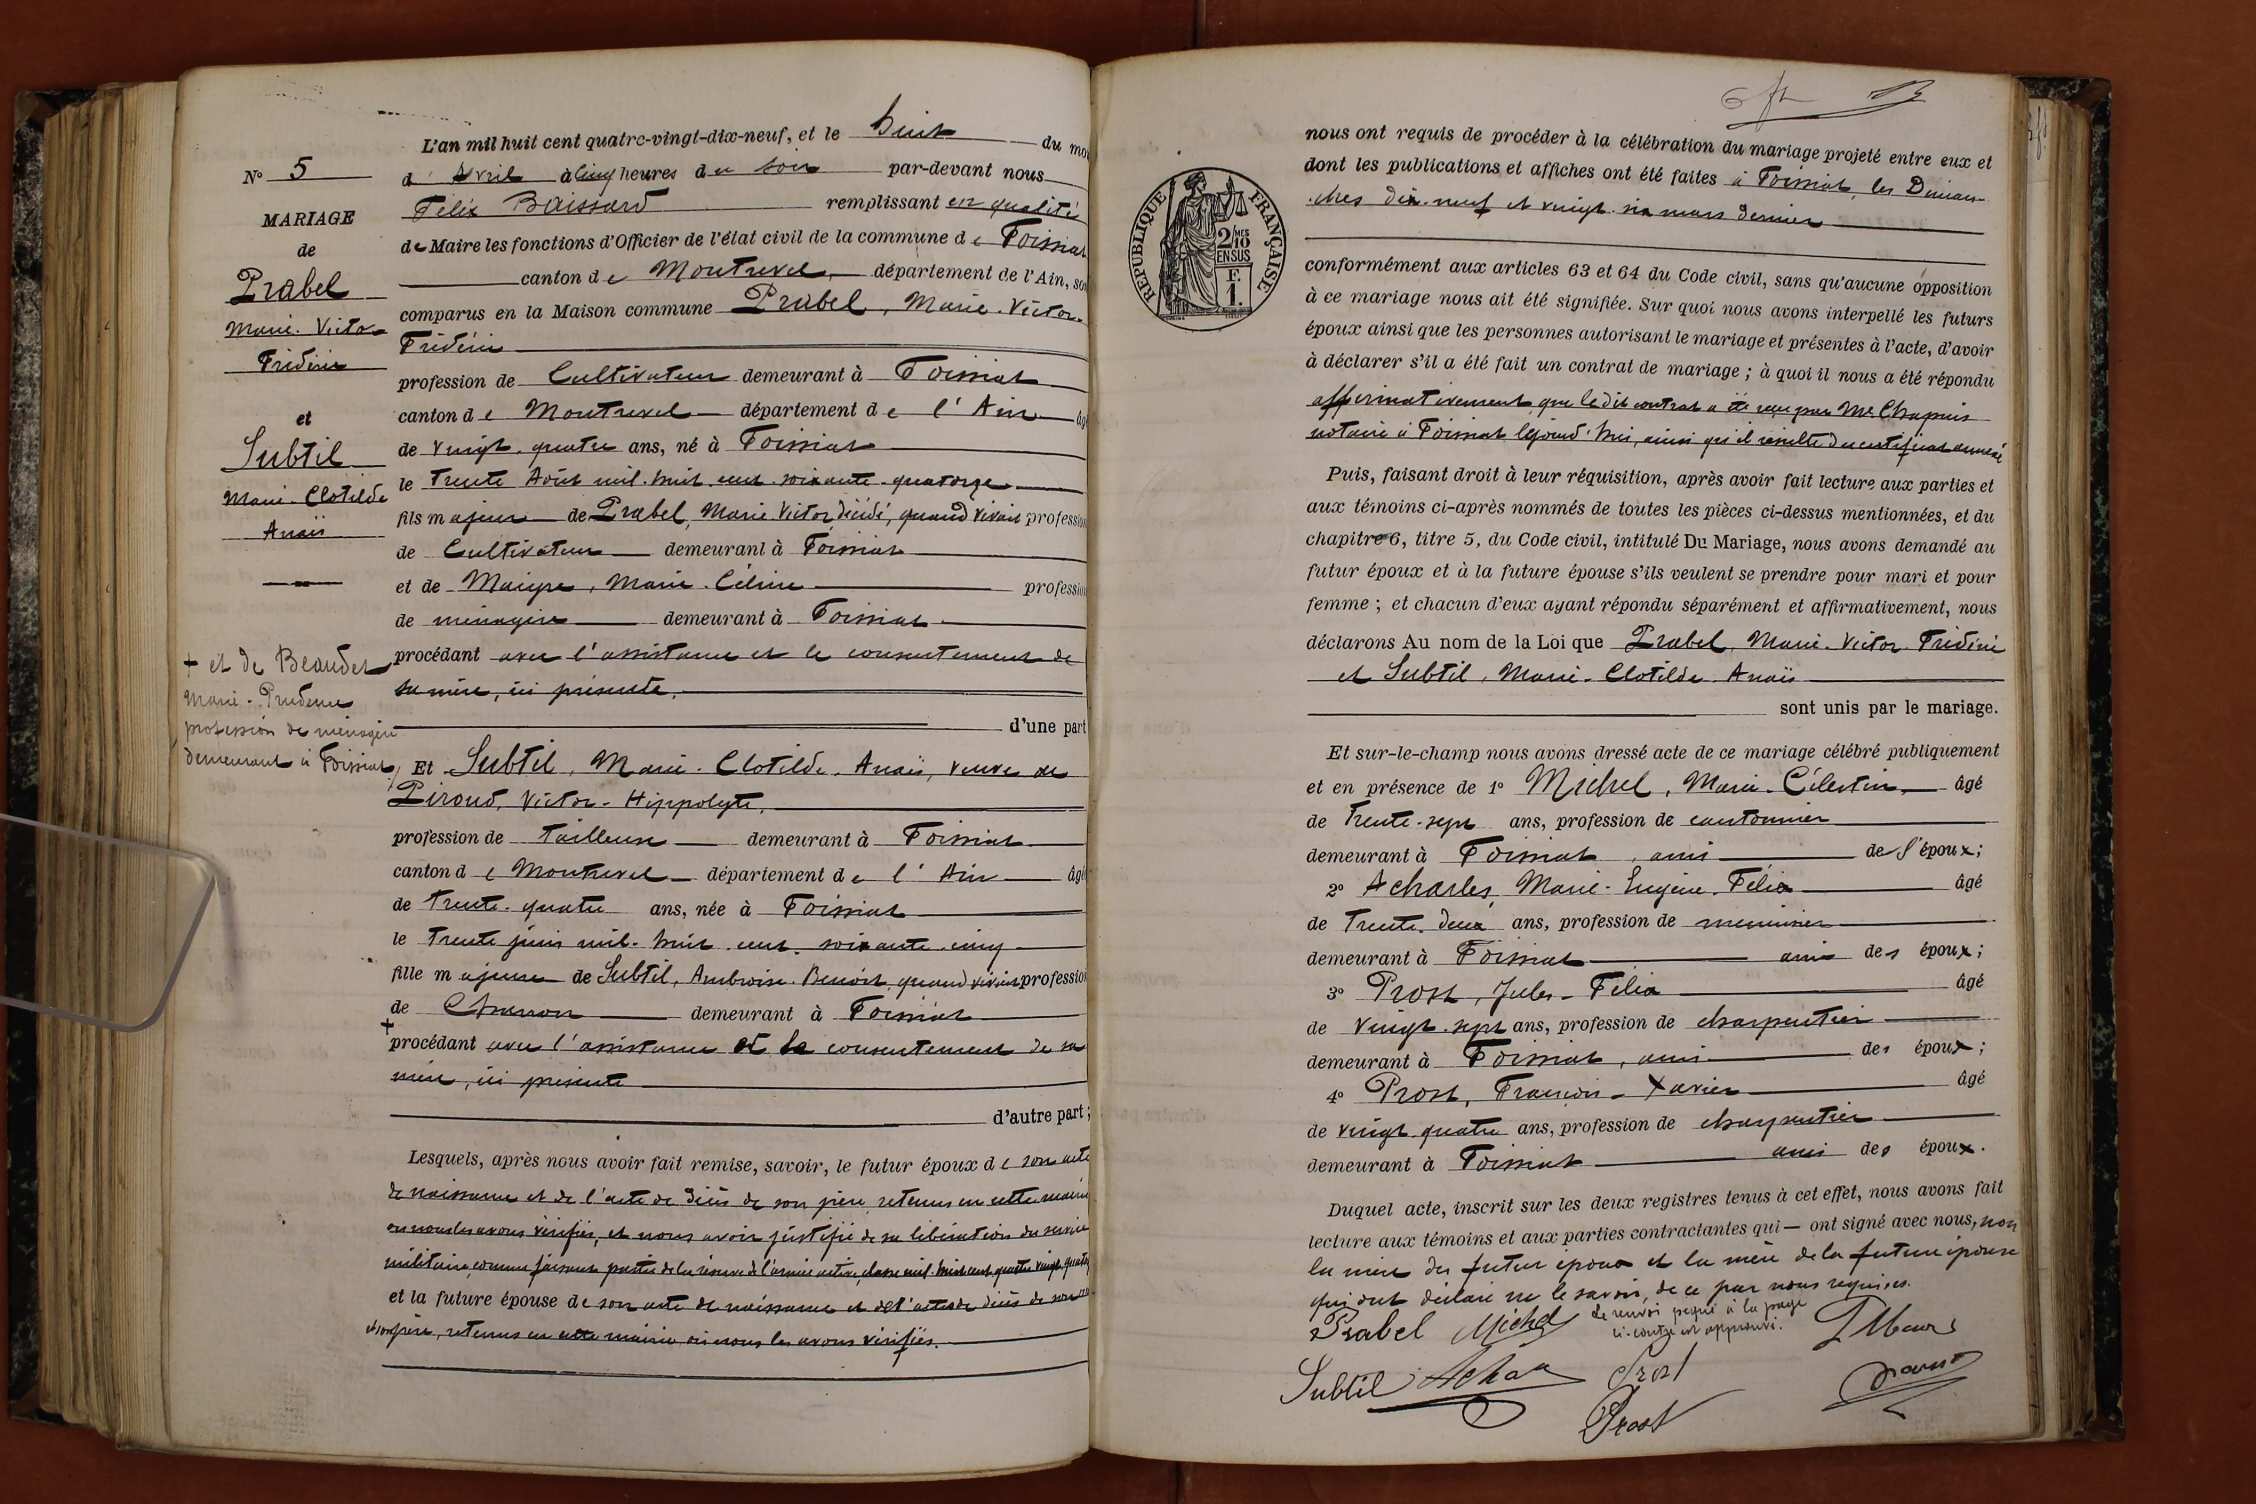 N° 5
MARIAGE
de
Prabel
Marie-Victor
Frédéric
et
Subtil
Marie-Clotilde
Anaïs
+ et de Beaudet
Marie-Prudence
profession de ménagère
demeurant à Foissiat
L'an mil huit cent quatre-vingt-dix-neuf, et le huit du mois
d'Avril à cinq heures du soir par-devant nous
Félix Baissard remplissant en qualité
de Maire les fonctions d'Officier de l'état civil de la commune de Foissiat
canton de Montrevel département de l'Ain, sont
comparus en la Maison commune Prabel, Marie-Victor-
Frédéric
profession de Cultivateur demeurant à Foissiat
canton de Montrevel département de l'Ain âgé
de vingt-quatre ans, né à Foissiat
le trente Août mil-huit-cent-soixante-quatorze
fils majeur de Prabel, Marie Victor décédé, quand vivait profession
de Cultivateur demeurant à Foissiat
et de Maigre, Marie-Céline profession
de ménagère demeurant à Foissiat
procédant avec l'assistance et le consentement de
sa mère, ici présente,
d'une part
Et Subtil, Marie-Clotilde-Anaïs, veuve de
Piroud, Victor-Hippolyte,
profession de tailleuse demeurant à Foissiat
canton de Montrevel département de l'Ain âgée
de trente-quatre ans, née à Foissiat
le trente juin mil-huit-cent-soixante-cinq
fille majeure de Subtil, Ambroise-Benoit, quand vivait profession
de Charron demeurant à Foissiat
+
procédant avec l'assistance et le consentement de sa
mère, ici présente
d'autre part ;
Lesquels, après nous avoir fait remise, savoir, le futur époux de son acte
de naissance et de l'acte de décès de son père, retenus en cette mairie
où nous les avons vérifiés, et nous avoir justifié de sa libération du service
militaire, comme faisant partie de la réserve de l'armée active, classe mil-huit-cent-quatre-vingt-quatorze
et la future épouse de son acte de naissance et de l'acte de décès de son mari
et son père, retenus en cette mairie où nous les avons vérifiés.
RÉPUBLIQUE FRANÇAISE
2/10 MES
EN SUS
F.
1.
nous ont requis de procéder à la célébration du mariage projeté entre eux et
dont les publications et affiches ont été faites à Foissiat, les Diman-
ches dix-neuf et vingt-six mars dernier
conformément aux articles 63 et 64 du Code civil, sans qu'aucune opposition
à ce mariage nous ait été signifiée. Sur quoi nous avons interpellé les futurs
époux ainsi que les personnes autorisant le mariage et présentes à l'acte, d'avoir
à déclarer s'il a été fait un contrat de mariage ; à quoi il nous a été répondu
affirmativement, que le dit contrat a été reçu par Me Chapuis
notaire à Foissiat ce jourd'hui, ainsi qu'il résulte du certificat annexé
Puis, faisant droit à leur réquisition, après avoir fait lecture aux parties et
aux témoins ci-après nommés de toutes les pièces ci-dessus mentionnées, et du
chapitre 6, titre 5, du Code civil, intitulé Du Mariage, nous avons demandé au
futur époux et à la future épouse s'ils veulent se prendre pour mari et pour
femme ; et chacun d'eux ayant répondu séparément et affirmativement, nous
déclarons Au nom de la Loi que Prabel, Marie-Victor-Frédéric
et Subtil, Marie-Clotilde-Anaïs
sont unis par le mariage.
Et sur-le-champ nous avons dressé acte de ce mariage célébré publiquement
et en présence de 1° Michel, Marie-Célestin, âgé
de trente-sept ans, profession de cantonnier
demeurant à Foissiat, ami de l'époux ;
2° Acharles, Marie-Eugène-Félix âgé
de trente-deux ans, profession de menuisier
demeurant à Foissiat ami des époux ;
3° Prost, Jules-Félix âgé
de vingt-sept ans, profession de charpentier
demeurant à Foissiat, ami des époux ;
4° Prost, François-Xavier âgé
de vingt-quatre ans, profession de charpentier
demeurant à Foissiat ami des époux.
Duquel acte, inscrit sur les deux registres tenus à cet effet, nous avons fait
lecture aux témoins et aux parties contractantes qui — ont signé avec nous, non
la mère du futur époux et la mère de la future épouse
qui ont déclaré ne le savoir, de ce par nous requises.
Le renvoi piqué à la page
ci-contre est approuvé.
Prabel Michel
Subtil Prost
Prost